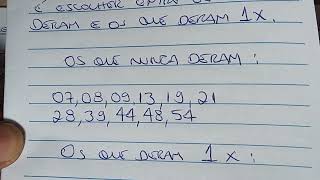 É ESCOLHER ENTRE OS
DERAM E OS QUE DERAM 1X.
OS QUE NUNCA DERAM:
07,08,09,13,19,21
28,39,44,48,54
OS QUE DERAM 1X: